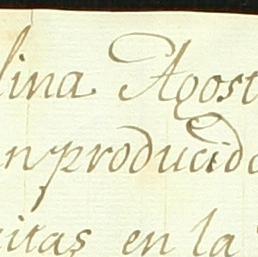 lina Agost
n producido
itas en la